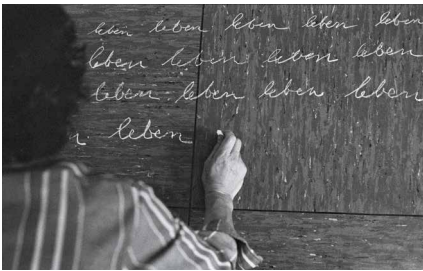 leben leben leben leben leben
leben leben leben leben
leben leben leben leben
leben